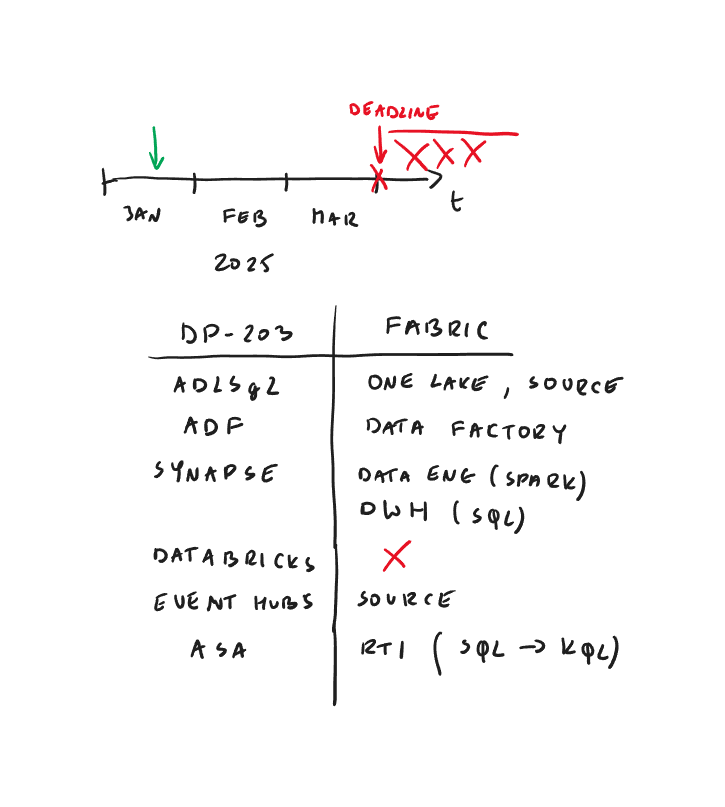 DEADLINE
XXX
X
t
JAN FEB MAR
2025
DP-203 FABRIC
ADLSg2 ONE LAKE, SOURCE
ADF DATA FACTORY
SYNAPSE DATA ENG (SPARK)
DWH (SQL)
DATABRICKS X
EVENT HUBS SOURCE
ASA RTI (SQL → KQL)